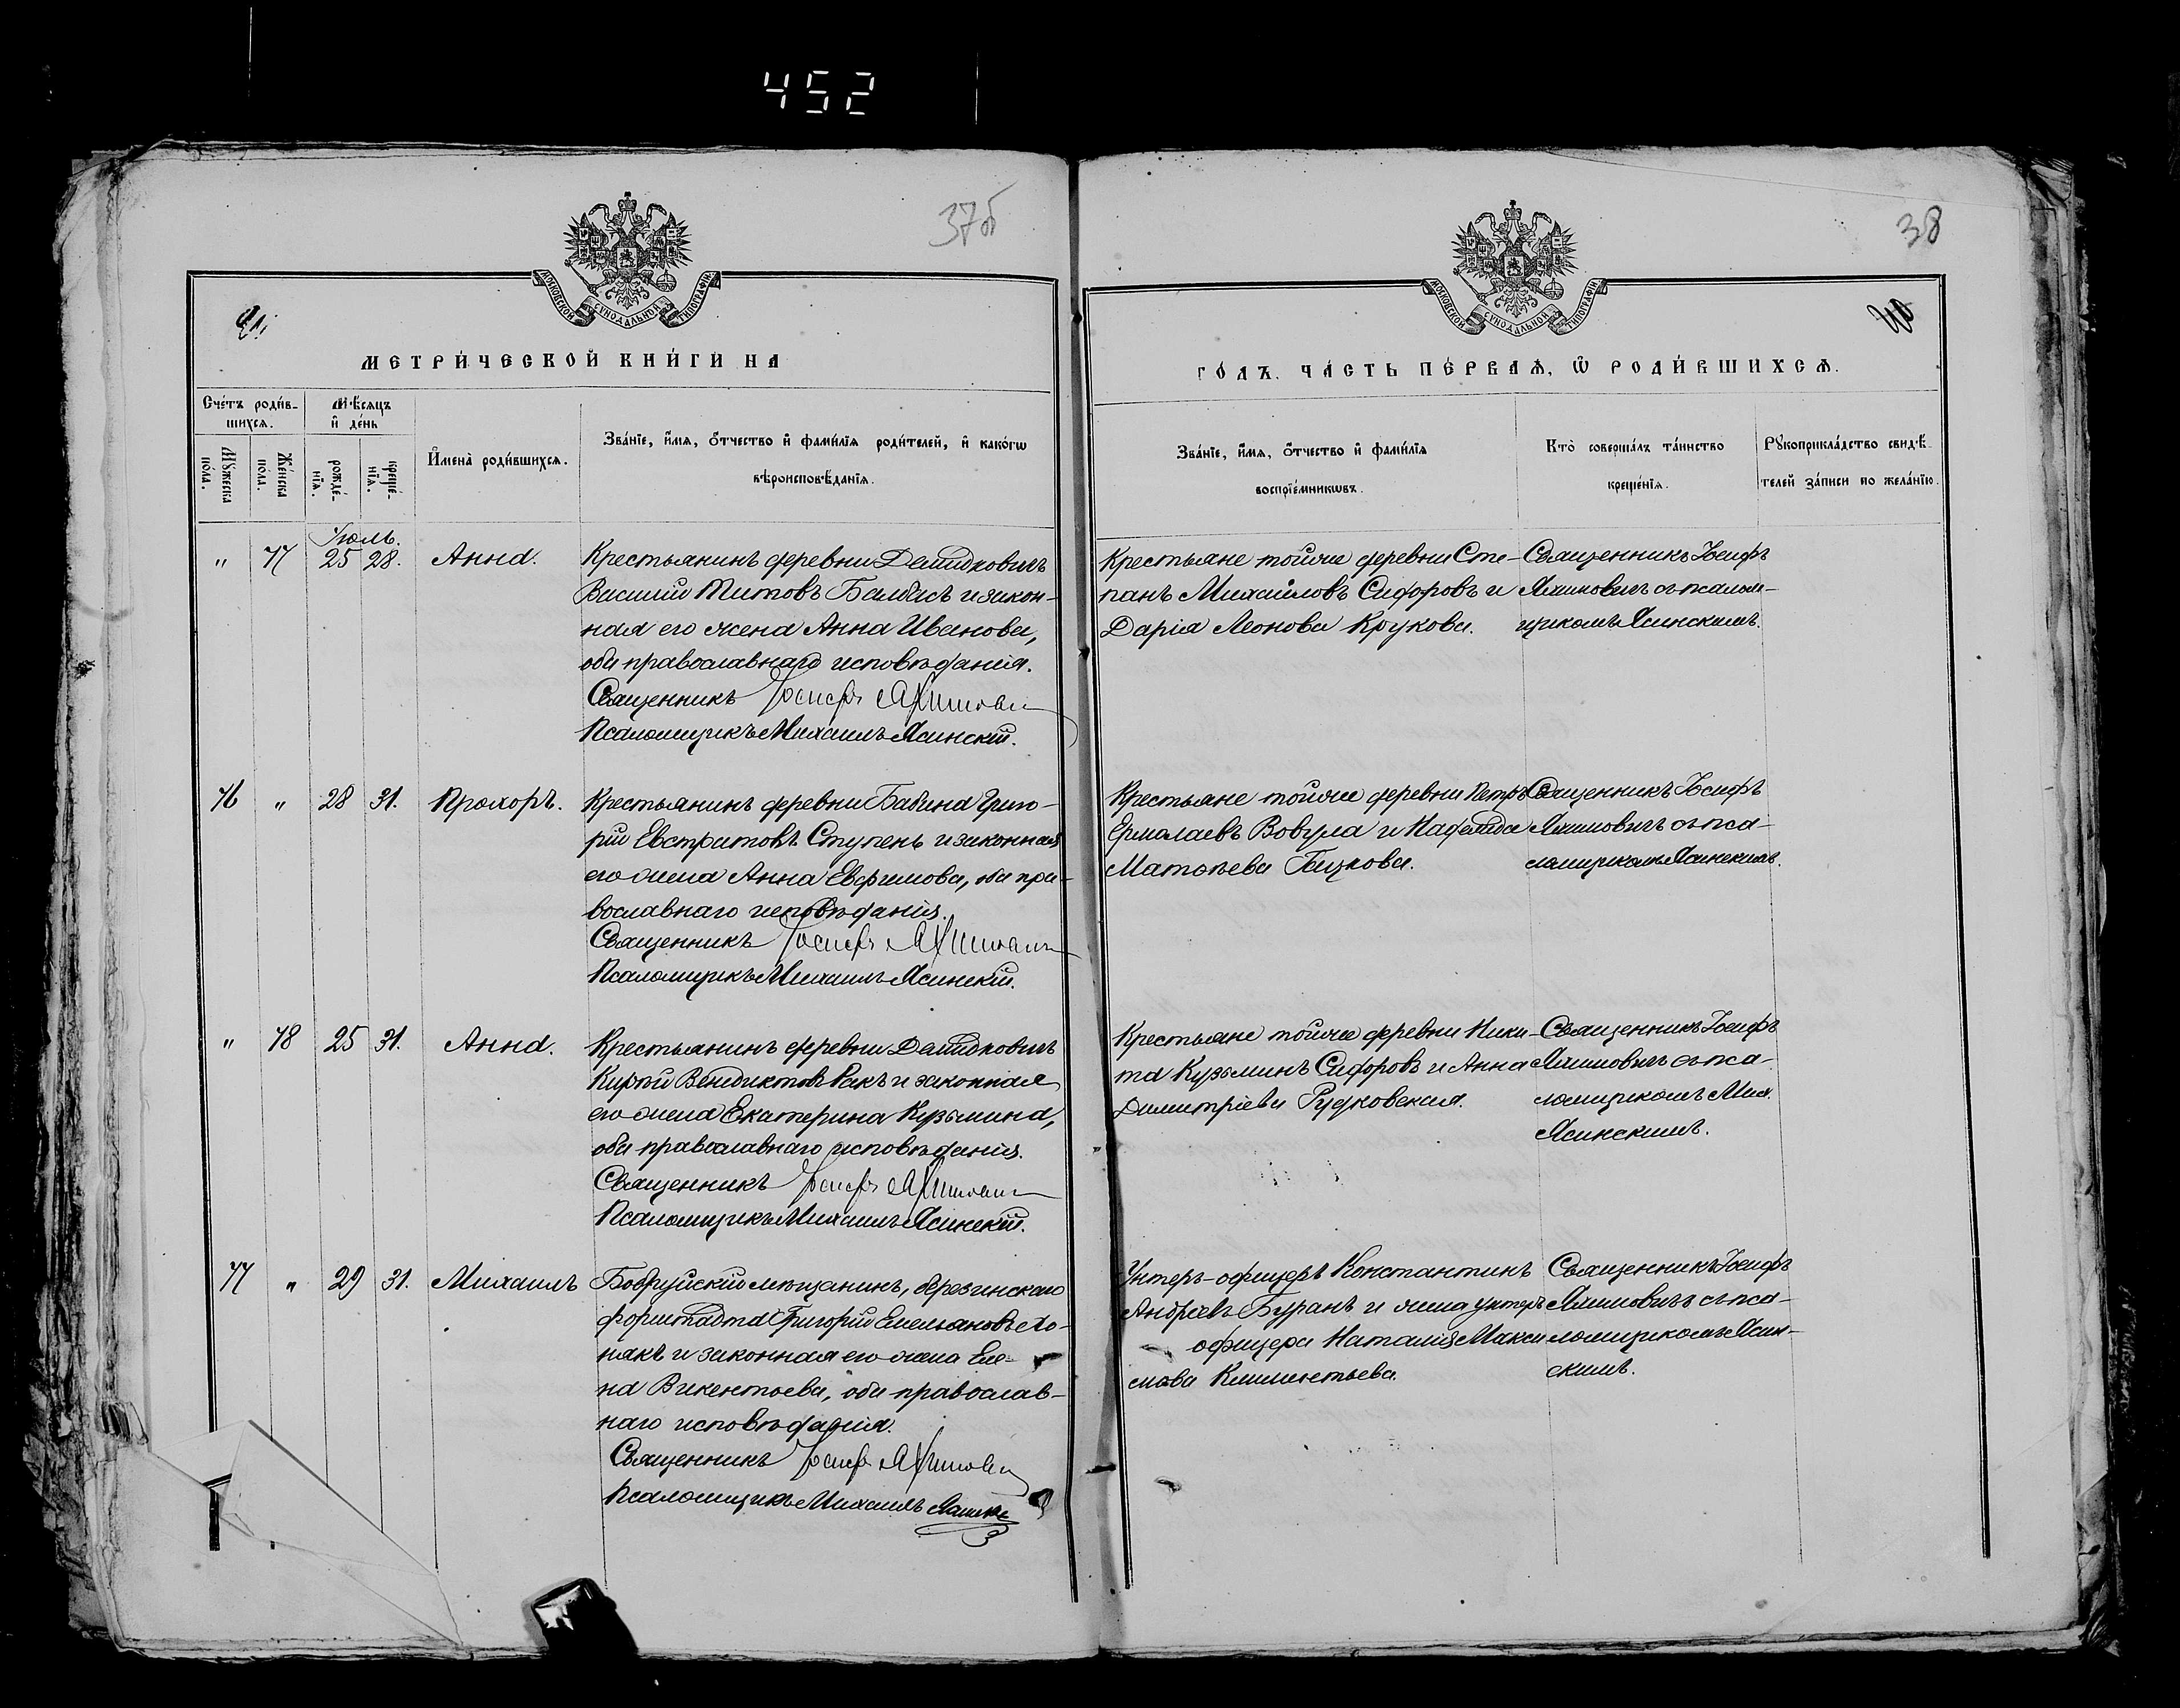 452
37б
38
МОСКОВСКОЙ СУНОДАЛЬНОЙ ТИПОГРАФІИ
МОСКОВСКОЙ СУНОДАЛЬНОЙ ТИПОГРАФІИ
МЕТРИ́ЧЕСКОЙ КНИ́ГИ НА
ГО́ДЪ. ЧА́СТЬ ПЕ́РВАѦ, Ѡ РОДИ́ВШИХСѦ.
Сче́тъ роди́в-
шихсѧ.
Мѣсѧцъ
и де́нь
Мꙋжеска по́ла.
Же́нска по́ла.
рожде́-
нїѧ.
креще́-
нїѧ.
Имена̀ роди́вшихсѧ.
Зва́нїе, и́мѧ, о́тчество и фами́лїѧ роди́телей, и како́гѡ
вѣроисповѣ́данїѧ.
Зва́нїе, и́мѧ, о́тчество и фами́лїѧ
воспрїе́мникѡвъ.
Кто̀ соверша́лъ та́инство
креще́нїѧ.
Рꙋкоприкла́дство свидѣ́-
телей за́писи по жела́нїю.
Іюль.
" 77 25 28. Анна.
Крестьянинъ деревни Демидковичъ
Василій Титовъ Балбасъ и закон-
ная его жена Анна Иванова,
оба православнаго исповѣданія.
Священникъ Іосифъ
Псаломщикъ Михаилъ Ясинскій.
Крестьяне той же деревни Сте-
панъ Михайловъ Сидоровъ и
Дарія Леонова Крукова.
Священникъ Іосифъ
Яхимовичъ съ псалом-
щикомъ Ясинскимъ.
76 " 28 31. Прохоръ.
Крестьянинъ деревни Бабина Григо-
рій Евстратовъ Ступень и законная
его жена Анна Евфимова, оба пра-
вославнаго исповѣданія.
Священникъ Іосифъ
Псаломщикъ Михаилъ Ясинскій.
Крестьяне той же деревни Петръ
Ермолаевъ Вовула и
Матѳеева
Священникъ Іосифъ
Яхимовичъ съ пса-
ломщикомъ Ясинскимъ.
" 78 25 31. Анна.
Крестьянинъ деревни Демидковичъ
Венедиктовъ Ракъ и законная
его жена Екатерина Кузьмина,
оба православнаго исповѣданія.
Священникъ Іосифъ
Псаломщикъ Михаилъ Ясинскій.
Крестьяне той же деревни Ники-
та Кузьминъ Сидоровъ и Анна
Димитріева Рудковская.
Священникъ Іосифъ
Яхимовичъ съ пса-
ломщикомъ Мих.
Ясинскимъ.
77 " 29 31. Михаилъ
Бобруйскій мѣщанинъ, березинскаго
форштадта Григорій Емельяновъ Хо-
някъ и законная его жена Еле-
на Викентьева, оба православ-
наго исповѣданія.
Священникъ Іосифъ
Псаломщикъ Михаилъ
Унтеръ-офицеръ Константинъ
Андреевъ Буранъ и жена унтеръ
офицера Наталія Макси
мова Климентьева.
Священникъ Іосифъ
Яхимовичъ съ пса-
ломщикомъ Ясин-
скимъ.